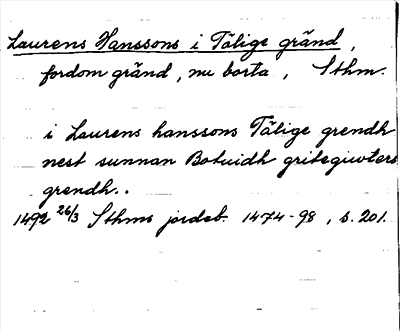 Laurens Hanssons i Tälige gränd,
fordom gränd, nu borta, Sthm.
i Laurens hanssons Tälige grendh
nest sunnan Botuidh gritegiwters
grendh..
1492 26/3 Sthms jordeb. 1474-98, s. 201.